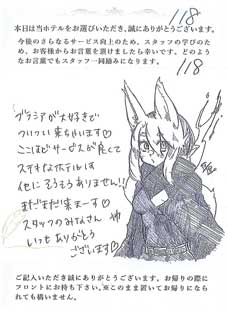 118
本日は当ホテルをお選びいただき、誠にありがとうございます。
今後のさらなるサービス向上のため、スタッフの学びのた
め、お客様からお言葉を頂けましたら幸いです。どのよう
なお言葉でもスタッフ一同励みになります。
118
ブラジアが大好きで
ついつい来ちゃいます♡
ここほどサービスが良くて
ステキなホテルは
他にそうそうありません!!
まだまだ来まーす♡
スタッフのみなさん
いつもありがとう
ございます♡
ご記入いただき誠にありがとうございます。お帰りの際に
フロントにお持ち下さい。※このまま置いてお帰りになら
れても構いません。